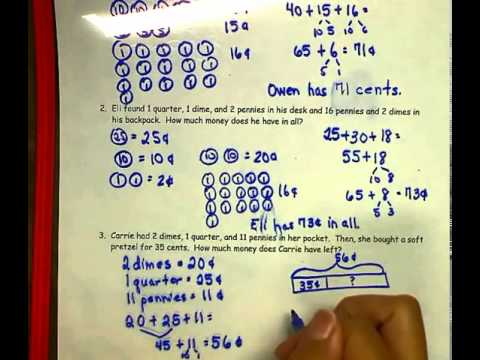 10 10 10
15¢
1 1 1 1 1
16¢
40 + 15 + 16 =
10 5 10 6
65 + 6 = 71¢
5 1
Owen has 71 cents.
2. Eli found 1 quarter, 1 dime, and 2 pennies in his desk and 16 pennies and 2 dimes in
his backpack. How much money does he have in all?
25 = 25¢
10 = 10¢
1 1 = 2¢
10 10 = 20¢
16¢
25+30+18 =
55+18
10 8
65 + 8 = 73¢
5 3
Eli has 73¢ in all.
3. Carrie had 2 dimes, 1 quarter, and 11 pennies in her pocket. Then, she bought a soft
pretzel for 35 cents. How much money does Carrie have left?
2 dimes = 20¢
1 quarter = 25¢
11 pennies = 11¢
20 + 25 + 11 =
45 + 11 = 56¢
10 1
56¢
35¢ ?